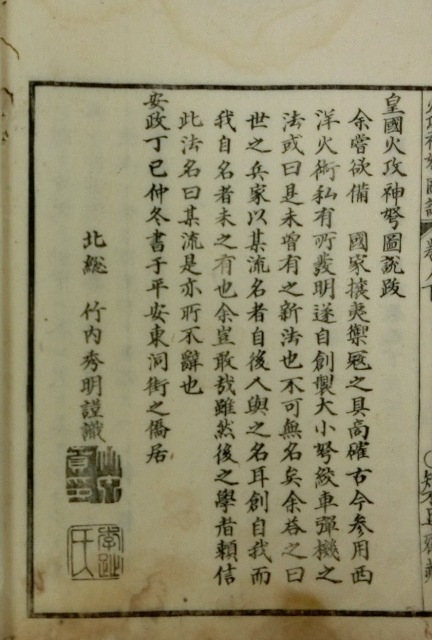 皇國火攻神弩圖説跋
余嘗欲備　國家攘夷禦寇之具商確古今参用西
洋火術私有所發明遂自創製大小弩絞車彈機之
法或曰是未曽有之新法也不可無名矣余荅之曰
世之兵家以某流名者自後人與之名耳創自我而
我自名者未之有也余豈敢哉雖然後之學者頼信
此法名曰某流是亦所不辭也
安政丁巳仲冬書于平安東洞街之僑居
北総　竹内秀明謹識